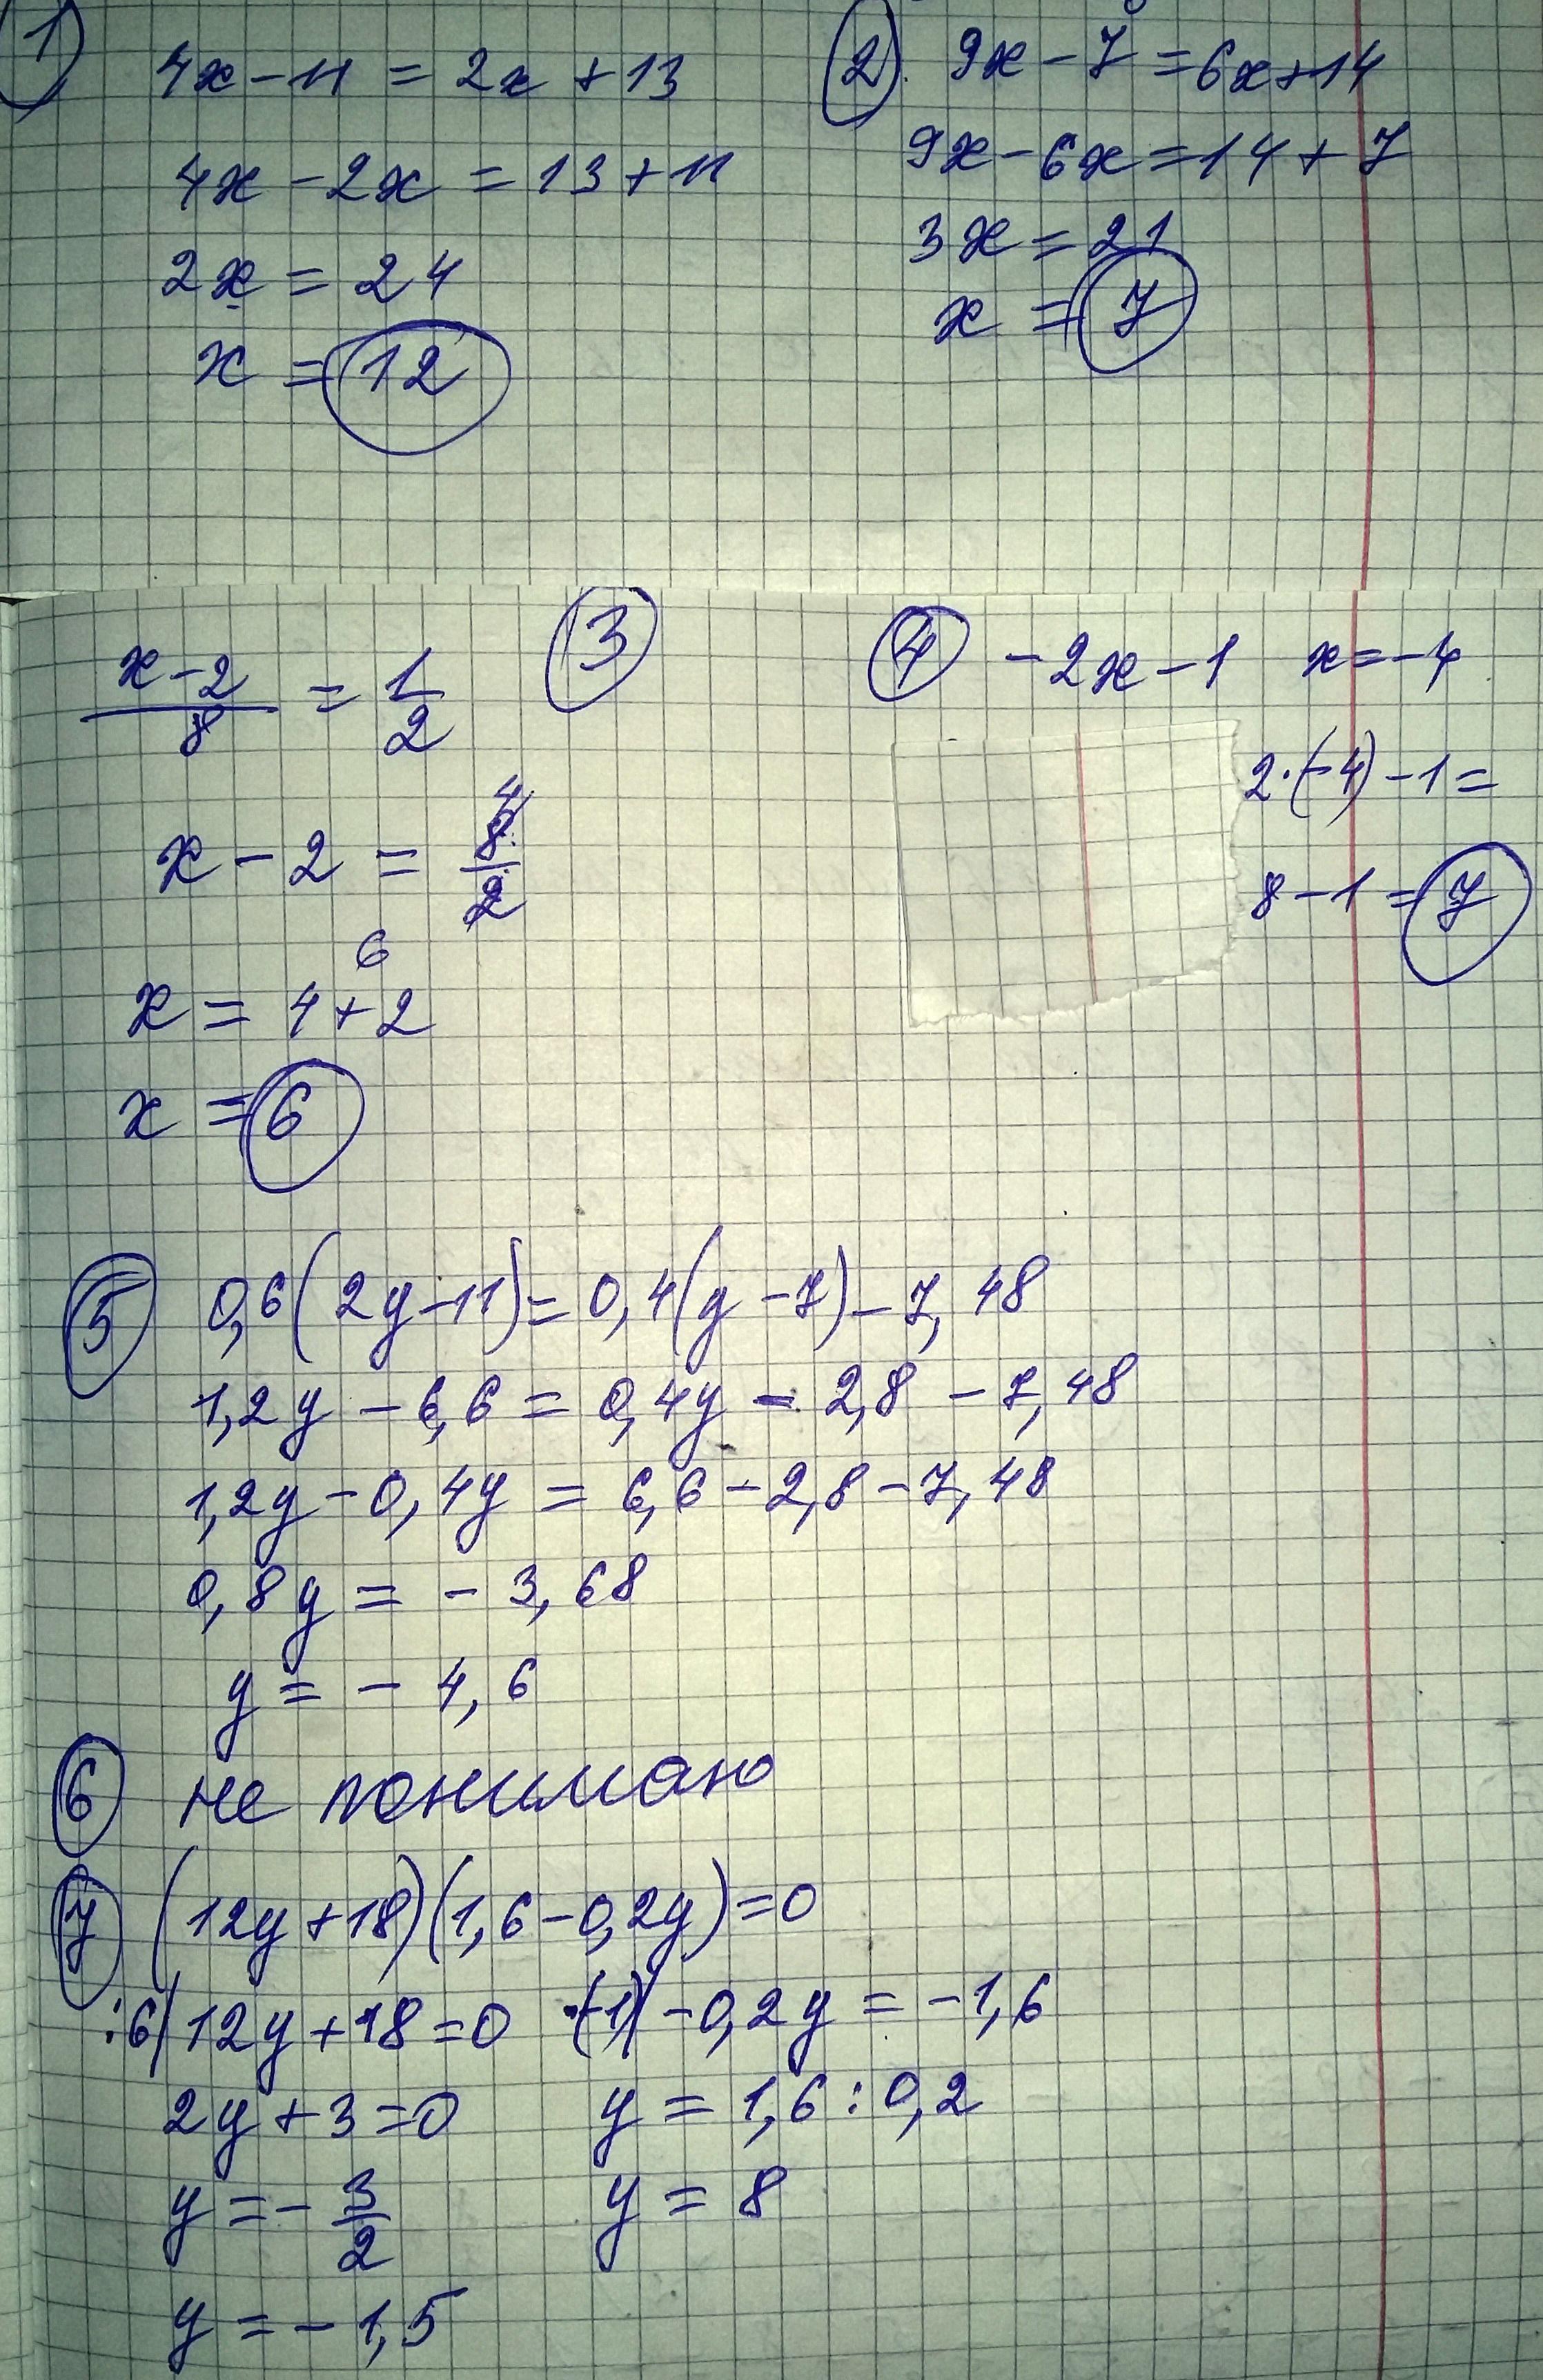 1
4x - 11 = 2x + 13
4x - 2x = 13 + 11
2x = 24
x = 12
2. 9x - 7 = 6x + 14
9x - 6x = 14 + 7
3x = 21
x = 7
3
x - 2 / 8 = 1/2
x - 2 = 8/2 4
6
x = 4 + 2
x = 6
4 - 2x - 1 x = -4
2·(-4) - 1 =
8 - 1 = 7
5 0,6(2y - 11) = 0,4(y - 7) - 7,48
1,2y - 6,6 = 0,4y - 2,8 - 7,48
1,2y - 0,4y = 6,6 - 2,8 - 7,48
0,8y = - 3,68
y = - 4,6
6 не понимаю
7 (12y + 18)(1,6 - 0,2y) = 0
:6| 12y + 18 = 0
2y + 3 = 0
y = - 3/2
y = - 1,5
·(-1)| -0,2y = -1,6
y = 1,6 : 0,2
y = 8